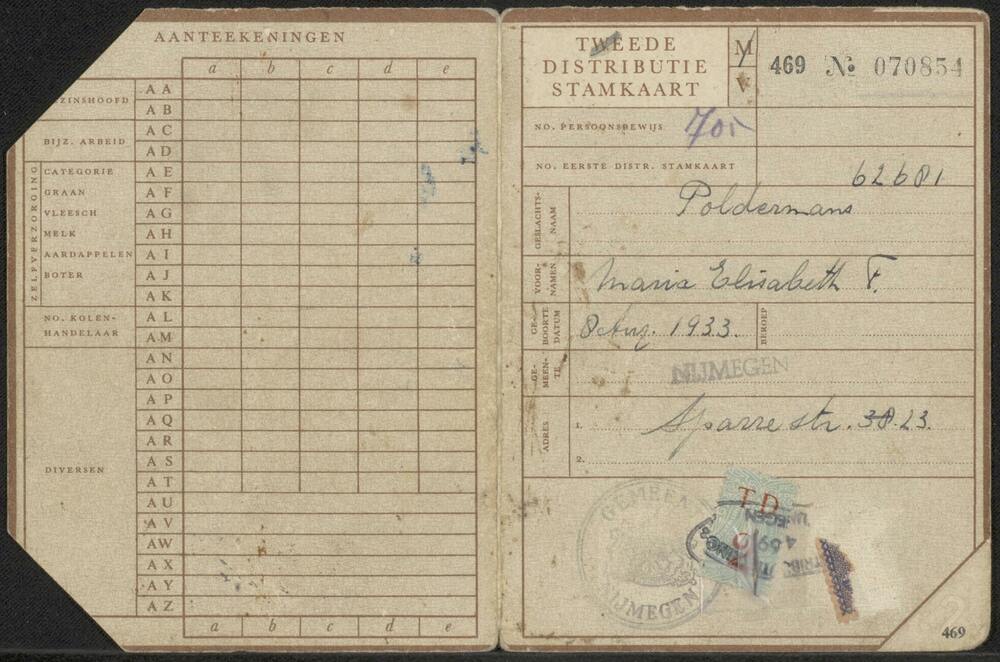 AANTEEKENINGEN
a b c d e
ZINSHOOFD
AA
AB
BIJZ. ARBEID
AC
AD
ZELFVERZORGING
CATEGORIE
AE
GRAAN
AF
VLEESCH
AG
MELK
AH
AARDAPPELEN
AI
BOTER
AJ
AK
NO. KOLEN-
HANDELAAR
AL
AM
DIVERSEN
AN
AO
AP
AQ
AR
AS
AT
AU
AV
AW
AX
AY
AZ
a b c d e
TWEEDE
DISTRIBUTIE
STAMKAART
M
V
469 № 070854
NO. PERSOONSBEWIJS
NO. EERSTE DISTR. STAMKAART
62681
GESLACHTS-
NAAM
Poldermans
VOOR-
NAMEN
Maria Elisabeth F.
GE-
BOORTE
DATUM
1933.
BEROEP
GE-
MEEN-
TE
NIJMEGEN
ADRES
1. Sparrestr. 23.
2.
GEMEEN
IJMEGEN
TD
469
469